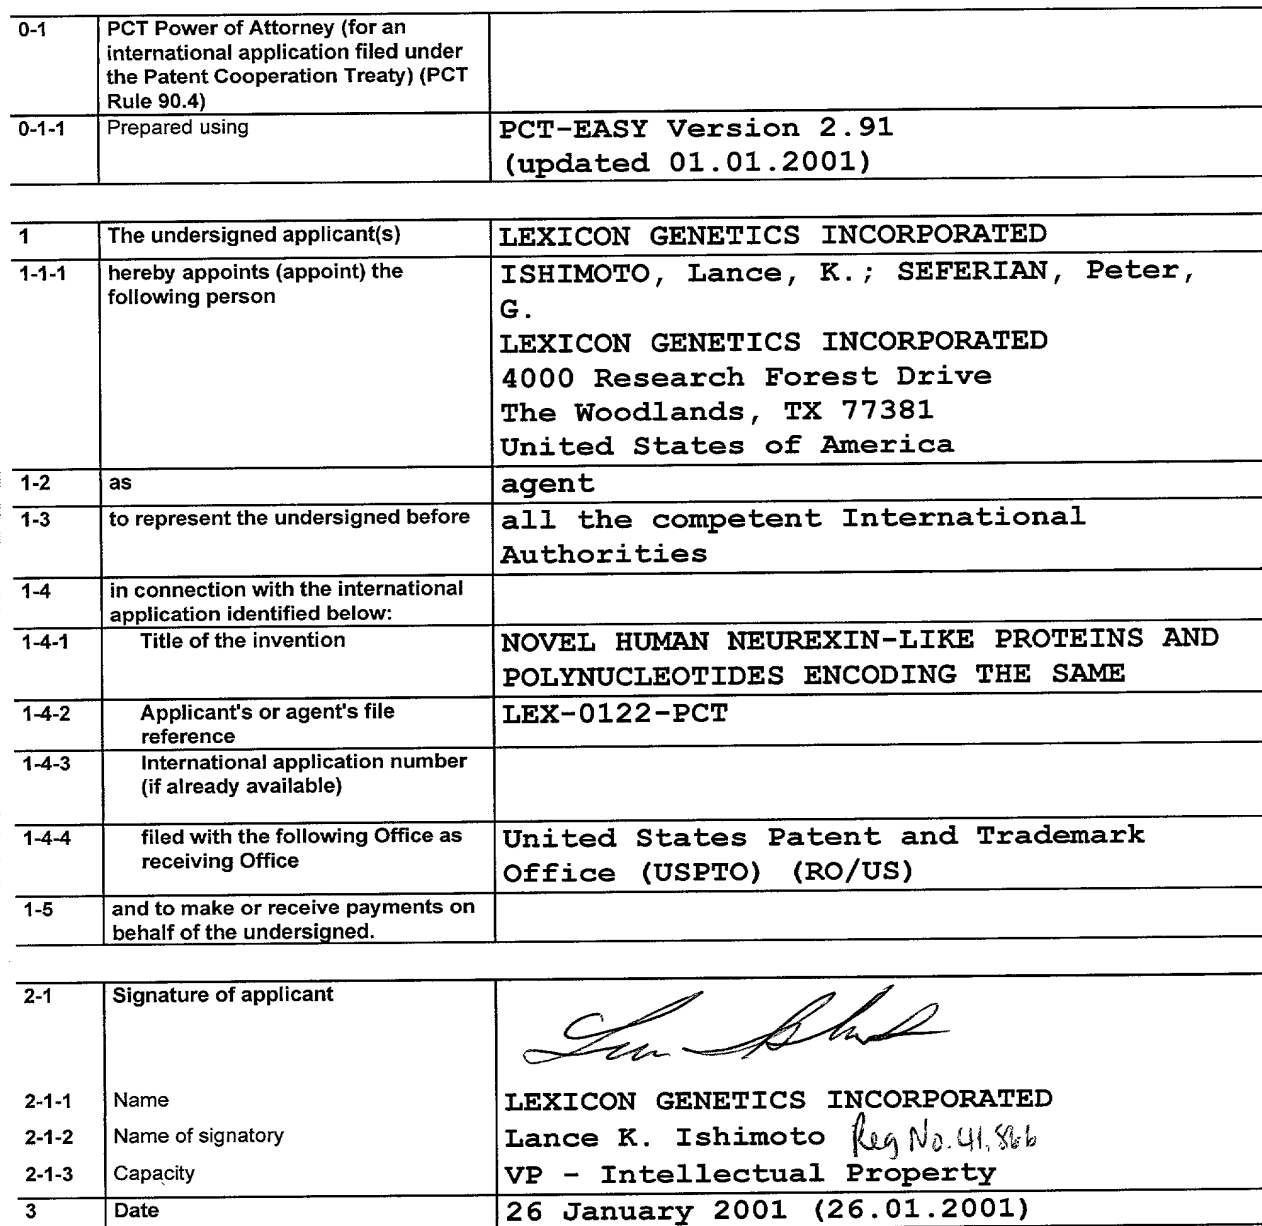 0-1 PCT Power of Attorney (for an
international application filed under
the Patent Cooperation Treaty) (PCT
Rule 90.4)
0-1-1 Prepared using PCT-EASY Version 2.91
(updated 01.01.2001)
1 The undersigned applicant(s) LEXICON GENETICS INCORPORATED
1-1-1 hereby appoints (appoint) the
following person
ISHIMOTO, Lance, K.; SEFERIAN, Peter,
G.
LEXICON GENETICS INCORPORATED
4000 Research Forest Drive
The Woodlands, TX 77381
United States of America
1-2 as agent
1-3 to represent the undersigned before all the competent International
Authorities
1-4 in connection with the international
application identified below:
1-4-1 Title of the invention NOVEL HUMAN NEUREXIN-LIKE PROTEINS AND
POLYNUCLEOTIDES ENCODING THE SAME
1-4-2 Applicant's or agent's file
reference
LEX-0122-PCT
1-4-3 International application number
(if already available)
1-4-4 filed with the following Office as
receiving Office
United States Patent and Trademark
Office (USPTO) (RO/US)
1-5 and to make or receive payments on
behalf of the undersigned.
2-1 Signature of applicant
2-1-1 Name LEXICON GENETICS INCORPORATED
2-1-2 Name of signatory Lance K. Ishimoto Reg No. 41,866
2-1-3 Capacity VP - Intellectual Property
3 Date 26 January 2001 (26.01.2001)